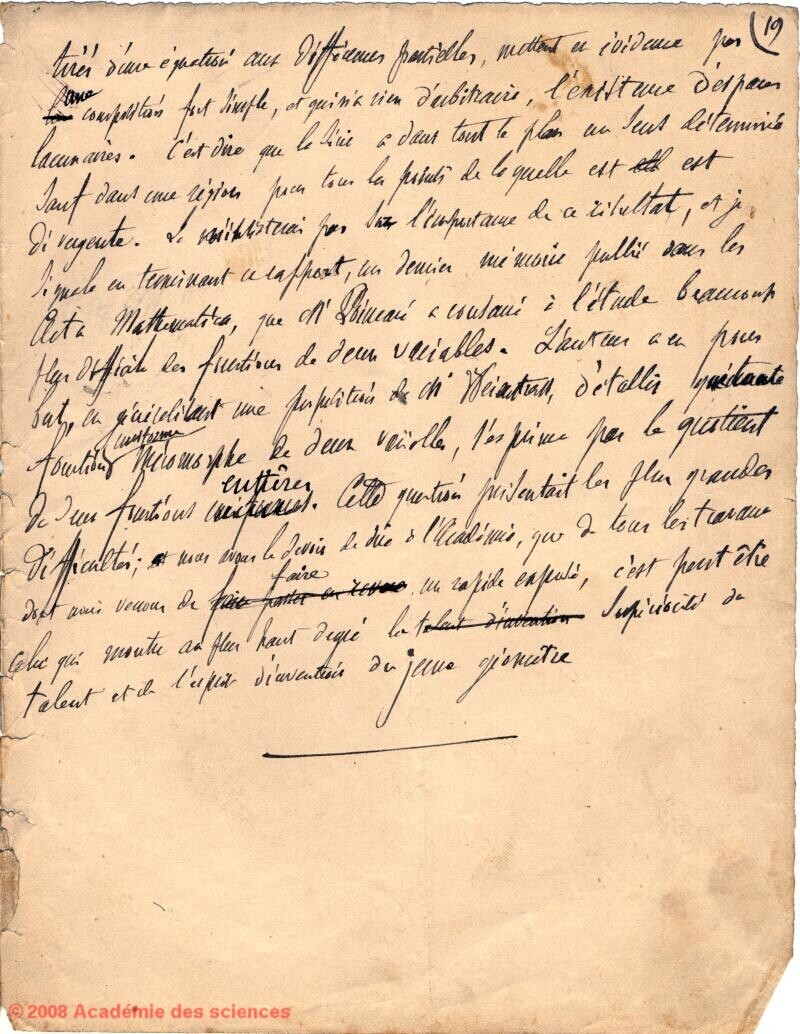 19
tirés d'une équation aux différences partielles, mettent en évidence par
une composition fort simple, et qui n'a rien d'arbitraire, l'existence d'espaces
lacunaires. C'est dire que la série a dans tout le plan un sens déterminé
sauf dans une région pour tous les points de laquelle est est
divergente. Je n'insisterai pas sur l'importance de ce résultat, et je
signale en terminant ce rapport, un dernier mémoire publié dans les
Acta Mathematica, que Mr Poincaré a consacré à l'étude beaucoup
plus difficile des fonctions de deux variables. L'auteur a eu pour
but, en généralisant une proposition de Mr Weierstrass, d'établir
uniforme
fonction méromorphe de deux variables, s'exprime par le quotient
entières
de deux fonctions. Cette question présentait les plus grandes
difficultés; et nous avons le devoir de dire à l'Académie, que de tous les travaux
faire
dont nous venons de faire passer en revue un rapide exposé, c'est peut être
celui qui montre au plus haut degré le talent d'invention supériorité du
talent et de l'esprit d'invention du jeune géomètre
© 2008 Académie des sciences